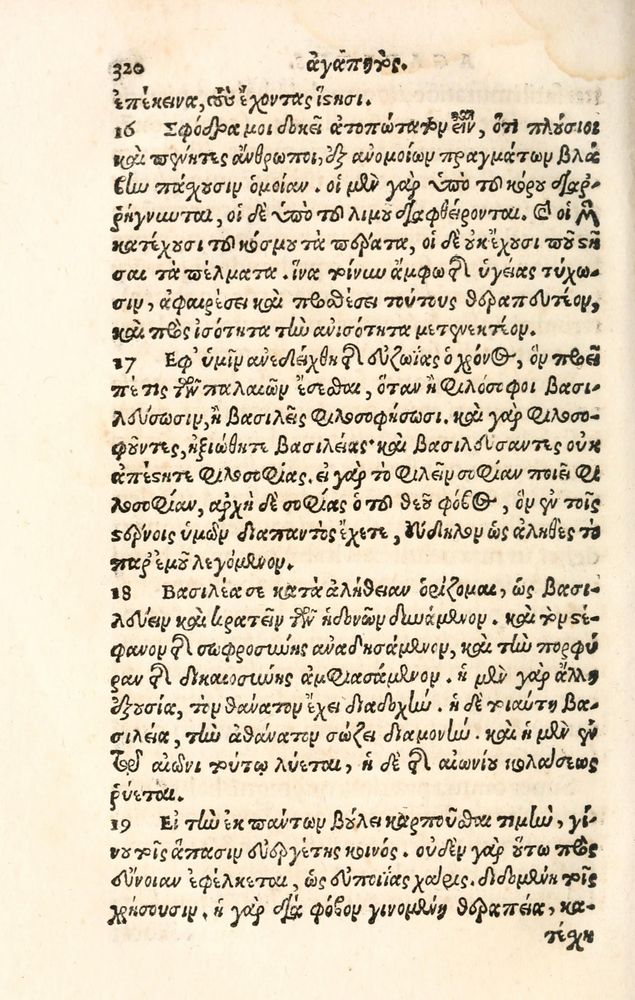 320 ἀγαπητὸς.
ἐπέκεινα, οὐκ ἔχοντας ἵησι.
16 Σφόδρα μοι δοκεῖ ἀτοπώτατον εἶναι, ὅτι πλούσιοι
καὶ πένητες ἄνθρωποι, ἐξ ἀνομοίων πραγμάτων βλά
βην πάσχουσιν ὁμοίαν. οἱ μὲν γὰρ ὑπὸ τοῦ κόρου διαρ-
ρήγνυνται, οἱ δὲ ὑπὸ τοῦ λιμοῦ διαφθείρονται. καὶ οἱ μὲν
κατέχουσι τοῦ κόσμου τὰ πέρατα, οἱ δὲ οὐκ ἔχουσι ποῦ στῆ
σαι τὰ πέλματα. ἵνα τοίνυν ἄμφω τῆς ὑγείας τύχω-
σιν, ἀφαιρέσει καὶ προσθέσει τούτους θεραπευτέον,
καὶ πρὸς ἰσότητα τὴν ἀνισότητα μετενεκτέον.
17 Ἐφ' ὑμῖν ἀνεδείχθη τῆς εὐζωΐας ὁ χρόνος, ὃν προεῖ
πέ τις τῶν παλαιῶν ἔσεσθαι, ὅταν ἢ φιλόσοφοι βασι-
λεύσωσιν, ἢ βασιλεῖς φιλοσοφήσωσι. καὶ γὰρ φιλοσο-
φοῦντες, ἠξιώθητε βασιλείας· καὶ βασιλεύσαντες οὐκ
ἀπέστητε φιλοσοφίας. εἰ γὰρ τὸ φιλεῖν σοφίαν ποιεῖ φι
λοσοφίαν, ἀρχὴ δὲ σοφίας ὁ τοῦ θεοῦ φόβος, ὃν ἐν τοῖς
στέρνοις ὑμῶν διαπαντὸς ἔχετε, εὔδηλον ὡς ἀληθὲς τὸ
παρ' ἐμοῦ λεγόμενον.
18 Βασιλέα σε κατὰ ἀλήθειαν ὁρίζομαι, ὡς βασι-
λεύειν καὶ κρατεῖν τῶν ἡδονῶν δυνάμενον. καὶ τὸν στέ-
φανον τῆς σωφροσύνης ἀναδησάμενον, καὶ τὴν πορφύ
ραν τῆς δικαιοσύνης ἀμφιασάμενον. ἡ μὲν γὰρ ἄλλη
ἐξουσία, τὸν θάνατον ἔχει διαδοχήν. ἡ δὲ τοιαύτη βα-
σιλεία, τὴν ἀθάνατον σώζει διαμονήν. καὶ ἡ μὲν ἐν
τῷ αἰῶνι τούτῳ λύεται, ἡ δὲ τῆς αἰωνίου κολάσεως
ῥύεται.
19 Εἰ τὴν ἐκ πάντων βούλει καρποῦσθαι τιμὴν, γί-
νου τοῖς ἅπασιν εὐεργέτης κοινός. οὐδὲν γὰρ οὕτω πρὸς
εὔνοιαν ἐφέλκεται, ὡς εὐποιΐας χάρις διδομένη τοῖς
χρήζουσιν. ἡ γὰρ διὰ φόβον γινομένη θεραπεία, κα-
τεσχη